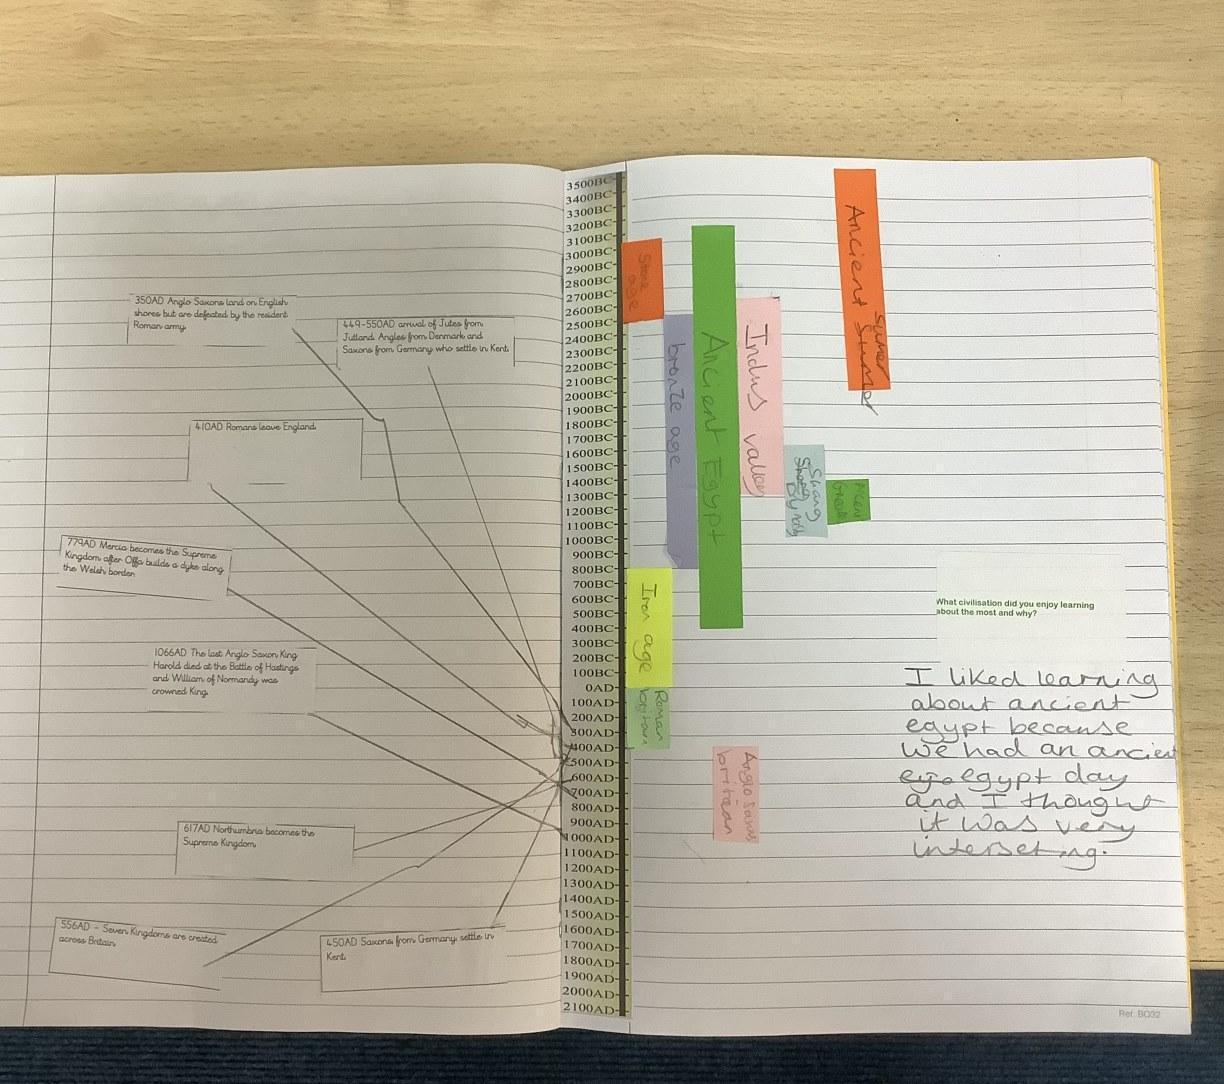 350AD Anglo Saxons land on English
shores but are defeated by the resident
Roman army.
449-550AD arrival of Jutes from
Jutland, Angles from Denmark and
Saxons from Germany who settle in Kent.
410AD Romans leave England.
779AD Mercia becomes the Supreme
Kingdom after Offa builds a dyke along
the Welsh border.
1066AD The last Anglo Saxon King
Harold died at the Battle of Hastings
and William of Normandy was
crowned King.
617AD Northumbria becomes the
Supreme Kingdom.
556AD - Seven Kingdoms are created
across Britain.
450AD Saxons from Germany settle in
Kent.
3500BC
3400BC
3300BC
3200BC
3100BC
3000BC
2900BC
2800BC
2700BC
2600BC
2500BC
2400BC
2300BC
2200BC
2100BC
2000BC
1900BC
1800BC
1700BC
1600BC
1500BC
1400BC
1300BC
1200BC
1100BC
1000BC
900BC
800BC
700BC
600BC
500BC
400BC
300BC
200BC
100BC
0AD
100AD
200AD
300AD
400AD
500AD
600AD
700AD
800AD
900AD
1000AD
1100AD
1200AD
1300AD
1400AD
1500AD
1600AD
1700AD
1800AD
1900AD
2000AD
2100AD
Stone
age
bronze age
Ancient Egypt
Indus valley
Shang
Ancient Sumer
Iron age
Roman
Anglo
What civilisation did you enjoy learning
about the most and why?
I liked learning
about ancient
egypt because
we had an ancient
egypt day
and I thought
it was very
interseting.
Ref: BO32